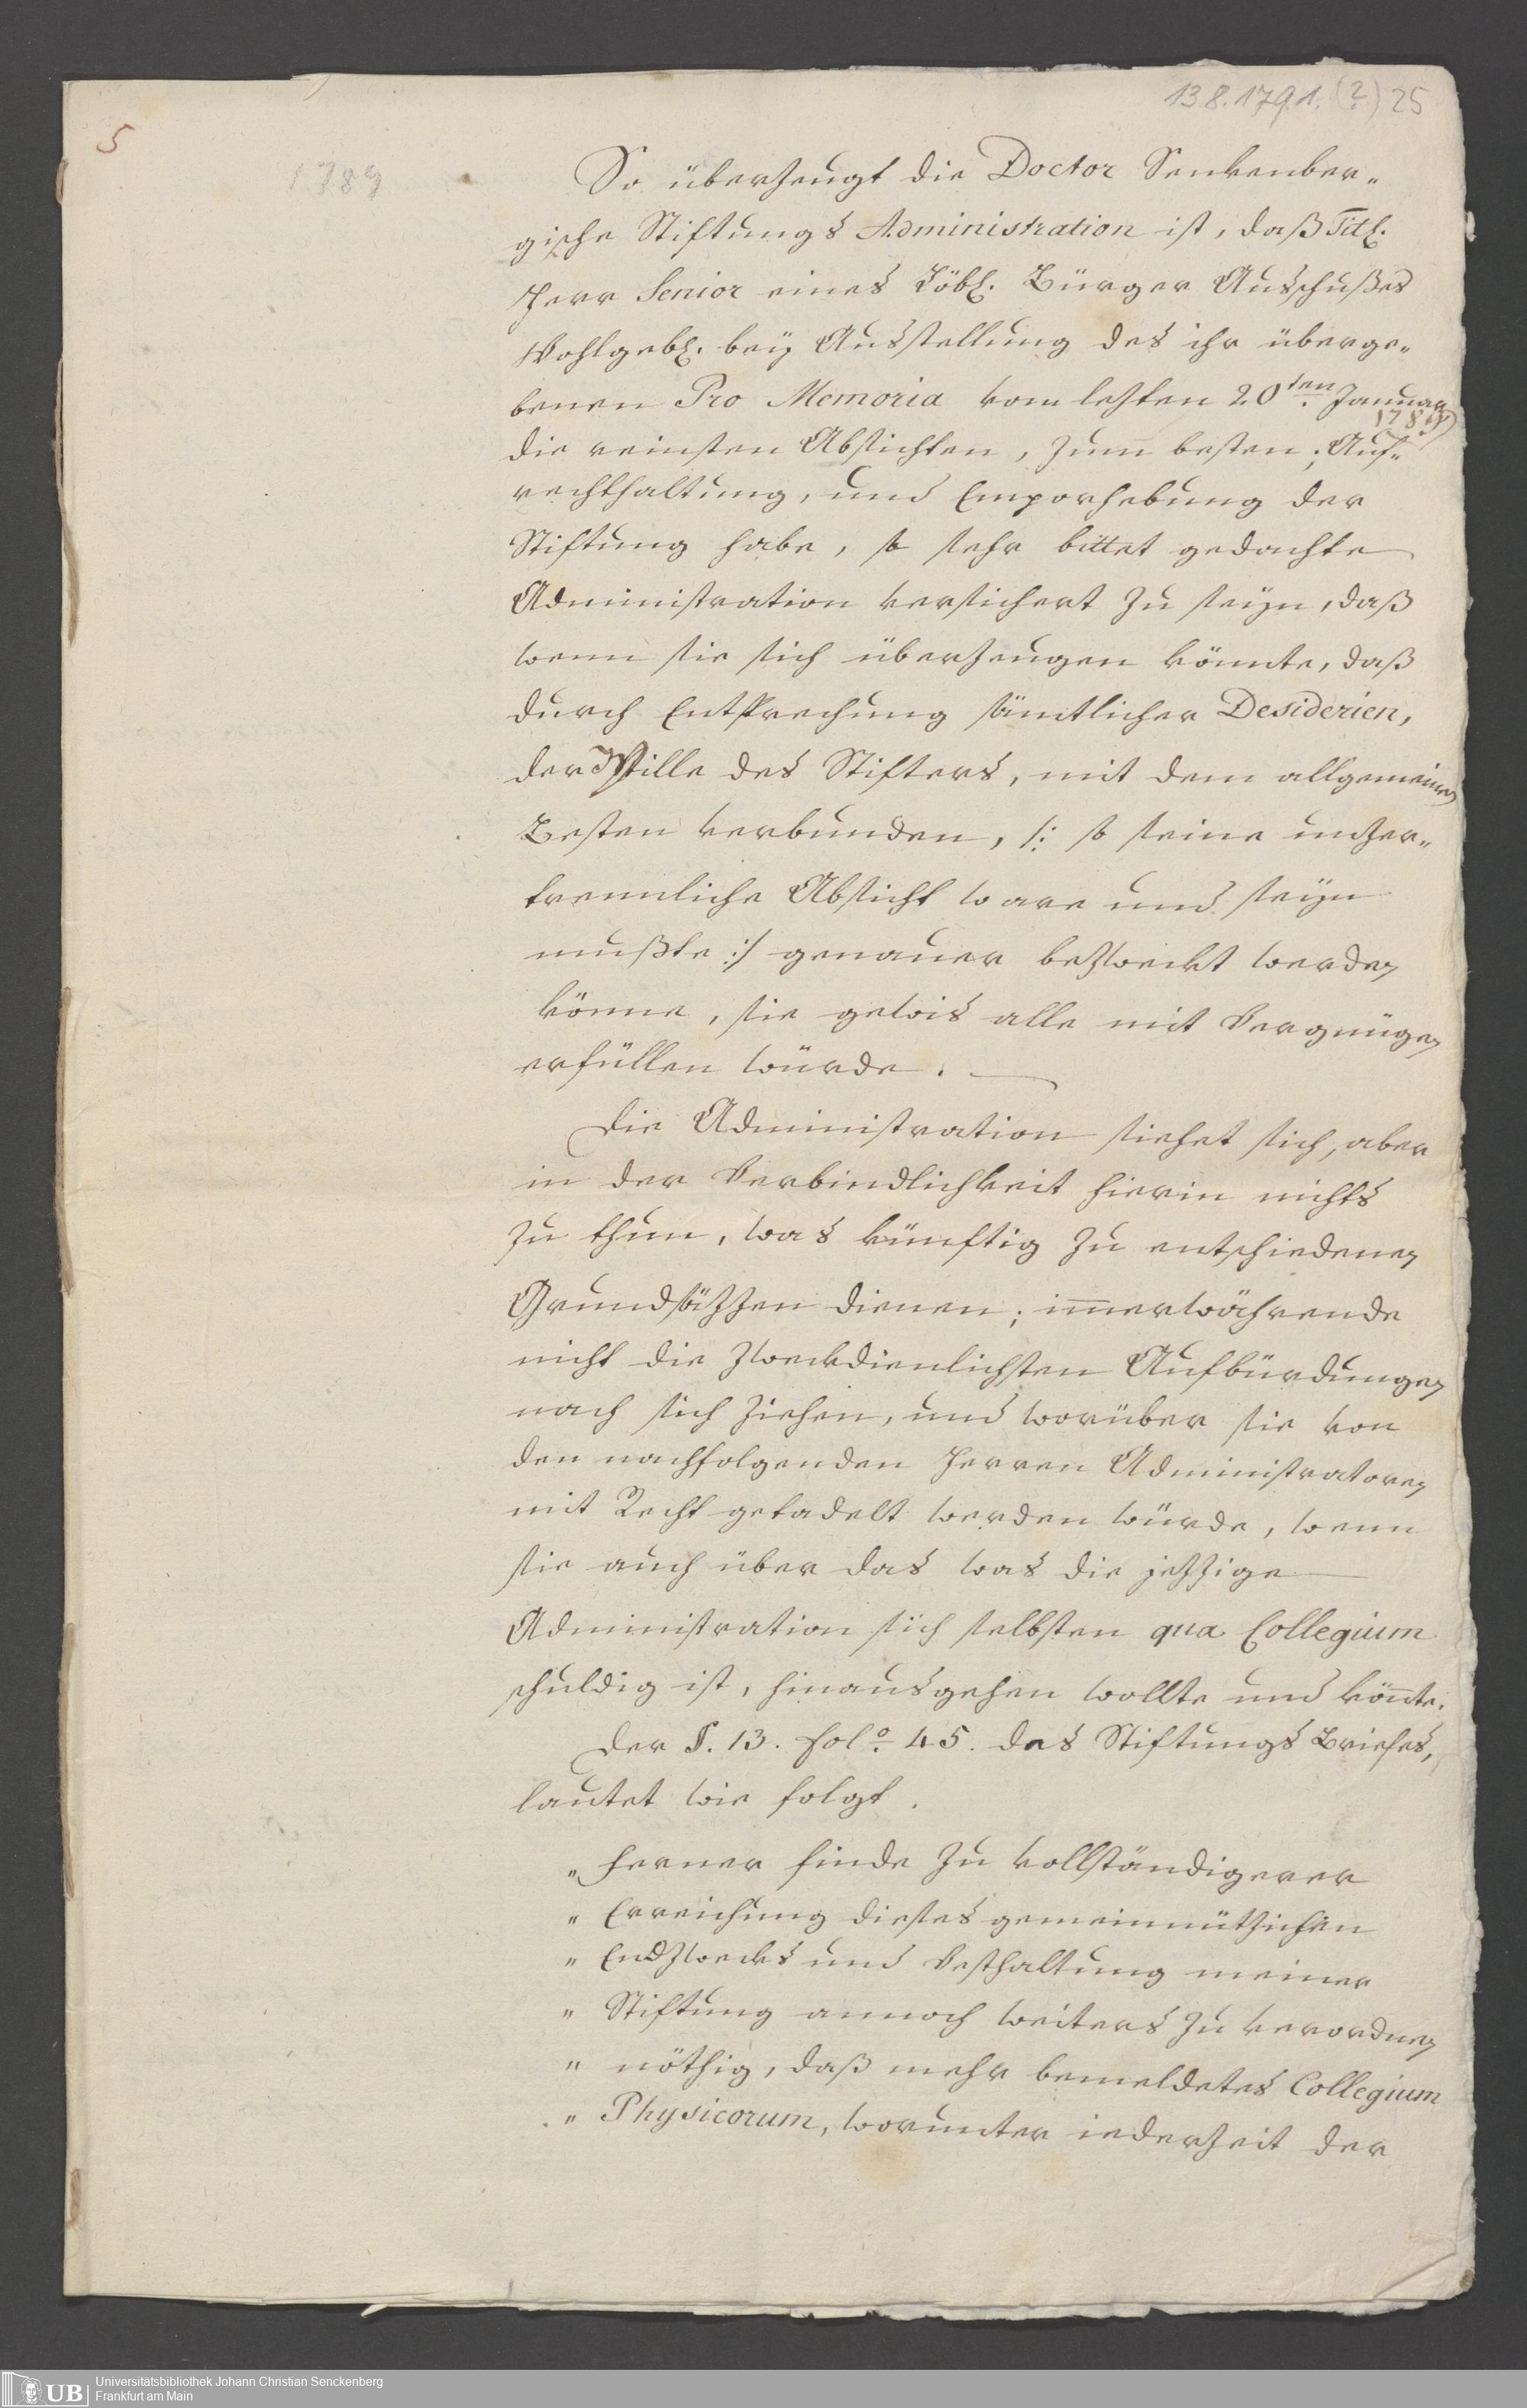 13.8.1791. (2) 25
5
1789
So überzeugt die Doctor Senkenber„
gische Stiftungs Administration ist, daß Titl.
Herr Senior eines Löbl. Bürger Ausschußes
Wohlgebl. bey Ausstellung des ihr überge„
benen Pro Memoria vom lezten 20ten Januar
1789
die reinsten Absichten, zum besten; Auf„
rechthaltung, und Emporhebung der
Stiftung habe, so sehr bittet gedachte
Administration versichert zu seyn, daß
wenn sie sich überzeugen könnte, daß
durch Entsprechung sämtlicher Desiderien,
der Wille des Stifters, mit dem allgemeinen
Besten verbunden, /: so seine unzer„
trennliche Absicht ware und seyn
mußte :/ genauer bezweckt werden
könne, sie gewis alle mit Vergnügen
erfüllen würde.
Die Administration siehet sich, aber
in der Verbindlichkeit hierin nichts
zu thun, was künftig zu entschiedenen
Grundsäzzen dienen; immerwährende
nicht die zweckdienlichsten Aufbürdungen
nach sich ziehen, und worüber sie von
den nachfolgenden Herren Administratoren
mit Recht getadelt werden würde, wenn
sie auch über das was die jezzige
Administration sich selbsten qua Collegium
schuldig ist, hinausgehen wollte und könte.
Der §. 13. fol.o 45. des Stiftungs Briefes,
lautet wie folgt.
„ Ferner finde zu vollständigerer
„ Erreichung dieses gemeinnützichen
„ Endzwecks und Vesthaltung meiner
„ Stiftung annoch weiters zu verordnen
„ nöthig, daß mehr bemeldetes Collegium
„ Physicorum, worunter iederzeit der
UB
Universitätsbibliothek Johann Christian Senckenberg
Frankfurt am Main